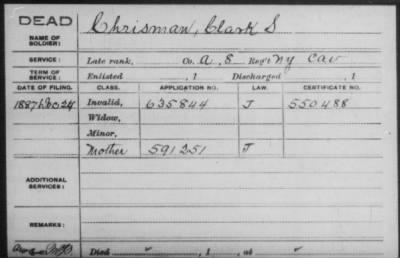 DEAD
NAME OF SOLDIER: Chrisman, Clark S
SERVICE: Late rank, Co. A, 8 Reg't NY Cav
TERM OF SERVICE: Enlisted , 1 Discharged , 1
DATE OF FILING. CLASS. APPLICATION NO. LAW. CERTIFICATE NO.
1887 Dec 24 Invalid, 635844 J 550488
Widow,
Minor,
Mother 591251 J
ADDITIONAL SERVICES:
REMARKS:
Died , 1 , at